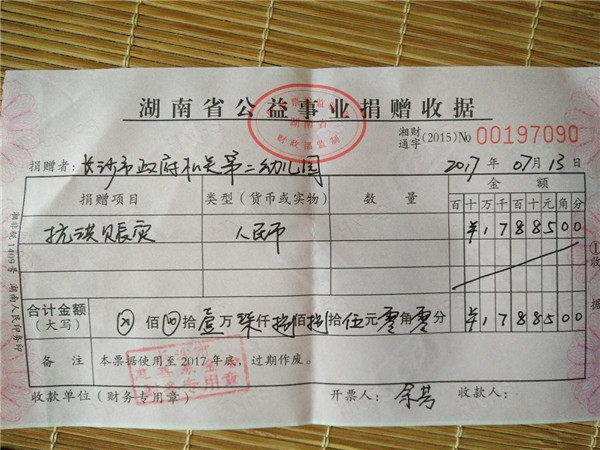 湖南省公益事业捐赠收据
财政部监制
湘财通字(2015)No 00197090
捐赠者：长沙市政府机关第二幼儿园 2017年07月13日
捐赠项目 类型（货币或实物） 数量 金额
百十万千百十元角分
抗洪赈灾 人民币 ¥1788500
合计金额（大写） ⊗佰⊗拾壹万柒仟捌佰捌拾伍元零角零分 ¥1788500
备注 本票据使用至2017年底，过期作废。
收款单位（财务专用章） 开票人：余芳 收款人：
①收据
湖南人民印务印